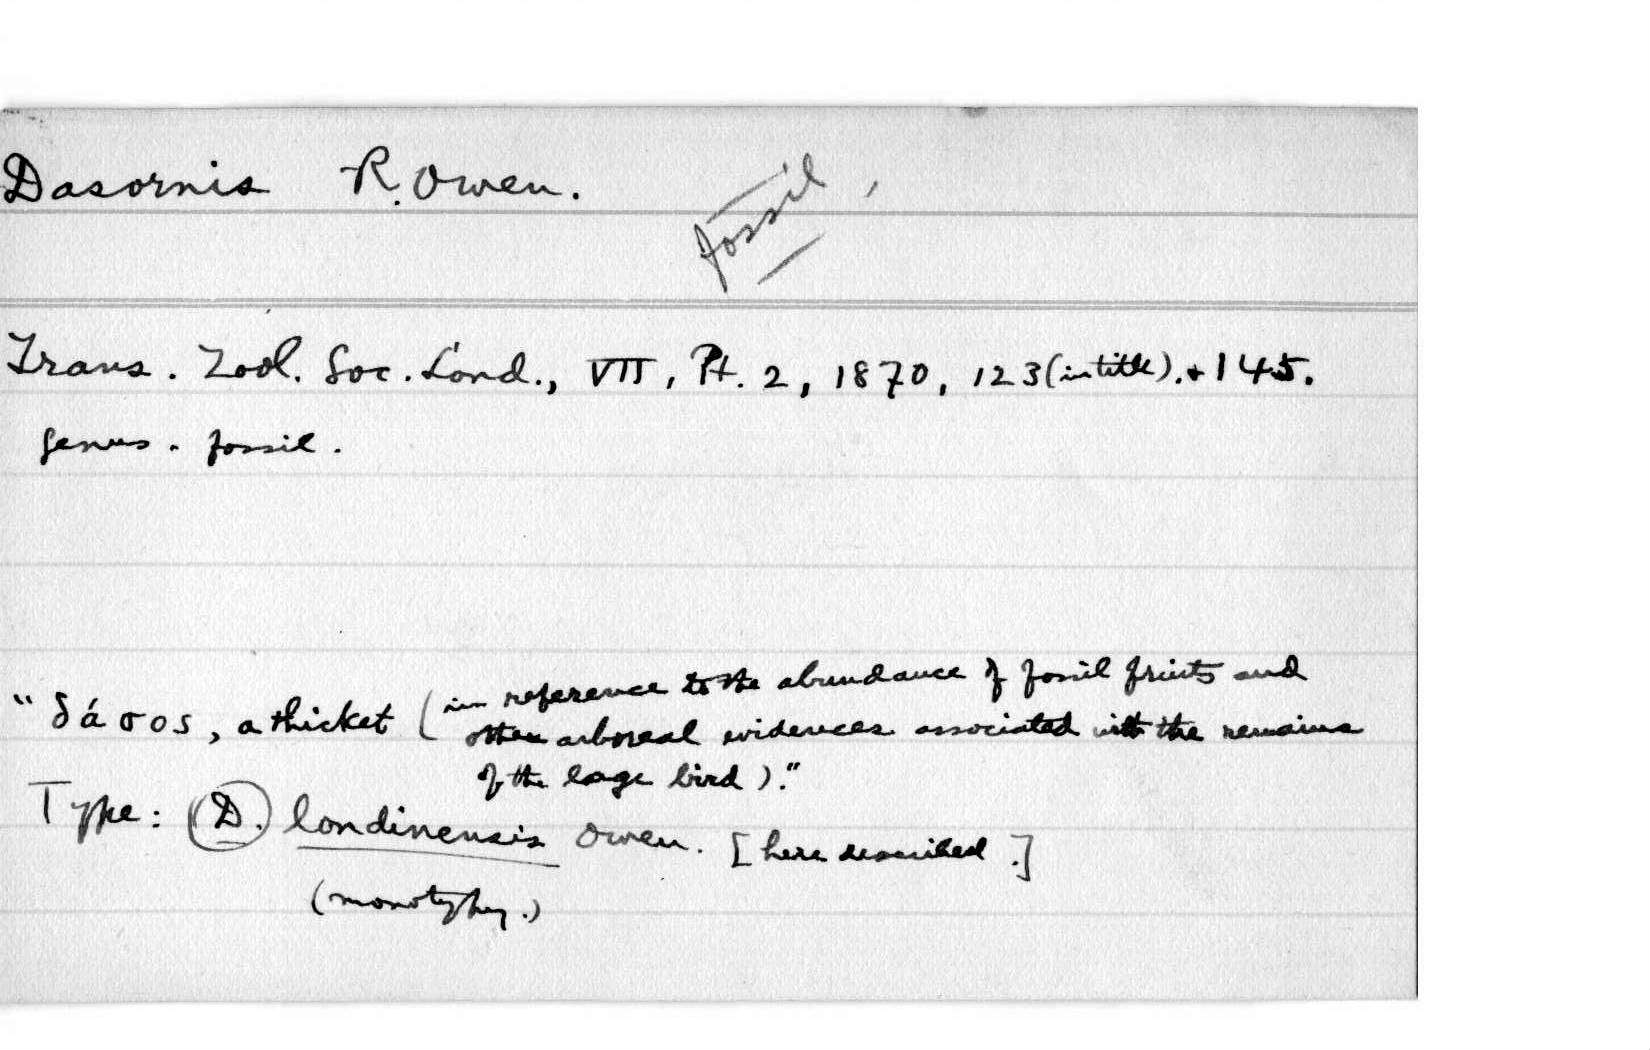 Dasornis R. Owen.
fossil
Trans. Zool. Soc. Lond., VII, Pt. 2, 1870, 123 (in title). + 145.
Genus. fossil.
"δάσος, a thicket (in reference to the abundance of fossil fruits and
other arboreal evidences associated with the remains
of the large bird)."
Type: (D.) londinensis Owen. [here described.]
(monotypy.)